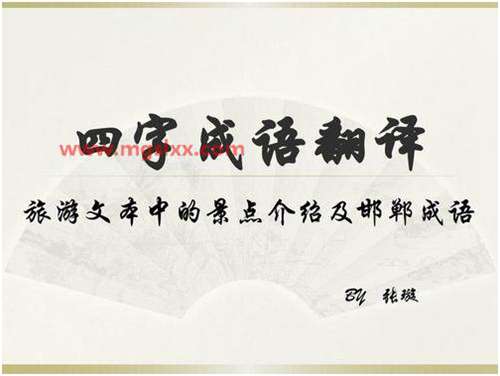 四字成语翻译
旅游文本中的景点介绍及邯郸成语
BY 张璇